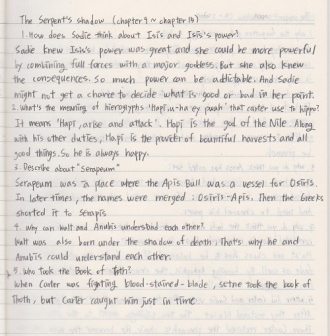 The Serpent's shadow (chapter 9 ~ chapter 16)
1. How does Sadie think about Isis and Isis's power?
Sadie knew Isis's power was great and she could be more powerful
by combining full forces with a major goddess. But she also knew
the consequences. So much power can be addictable. And Sadie
might not get a chance to decide what is good or bad in her point.
2. What's the meaning of hieroglyphs 'Hapi, u-ha ey pwah' that carter use to hippo?
It means 'Hapi, arise and attack'. Hapi is the god of the Nile. Along
with his other duties, Hapi is the provider of bountiful harvests and all
good things. So he is always happy.
3. Describe about "Serapeum"
Serapeum was a place where the Apis Bull was a vessel for Osiris.
In later times, the names were merged : Osiris-Apis. Then the Greeks
shorted it to Serapis
4. Why can walt and Anubis understand each other?
Walt was also born under the shadow of death. That's why he and
Anubis could understand each other.
5. who took the Book of Toth?
When Carter was fighting blood-stained-blade, setne took the book of
Thoth, but Carter caught him just in time